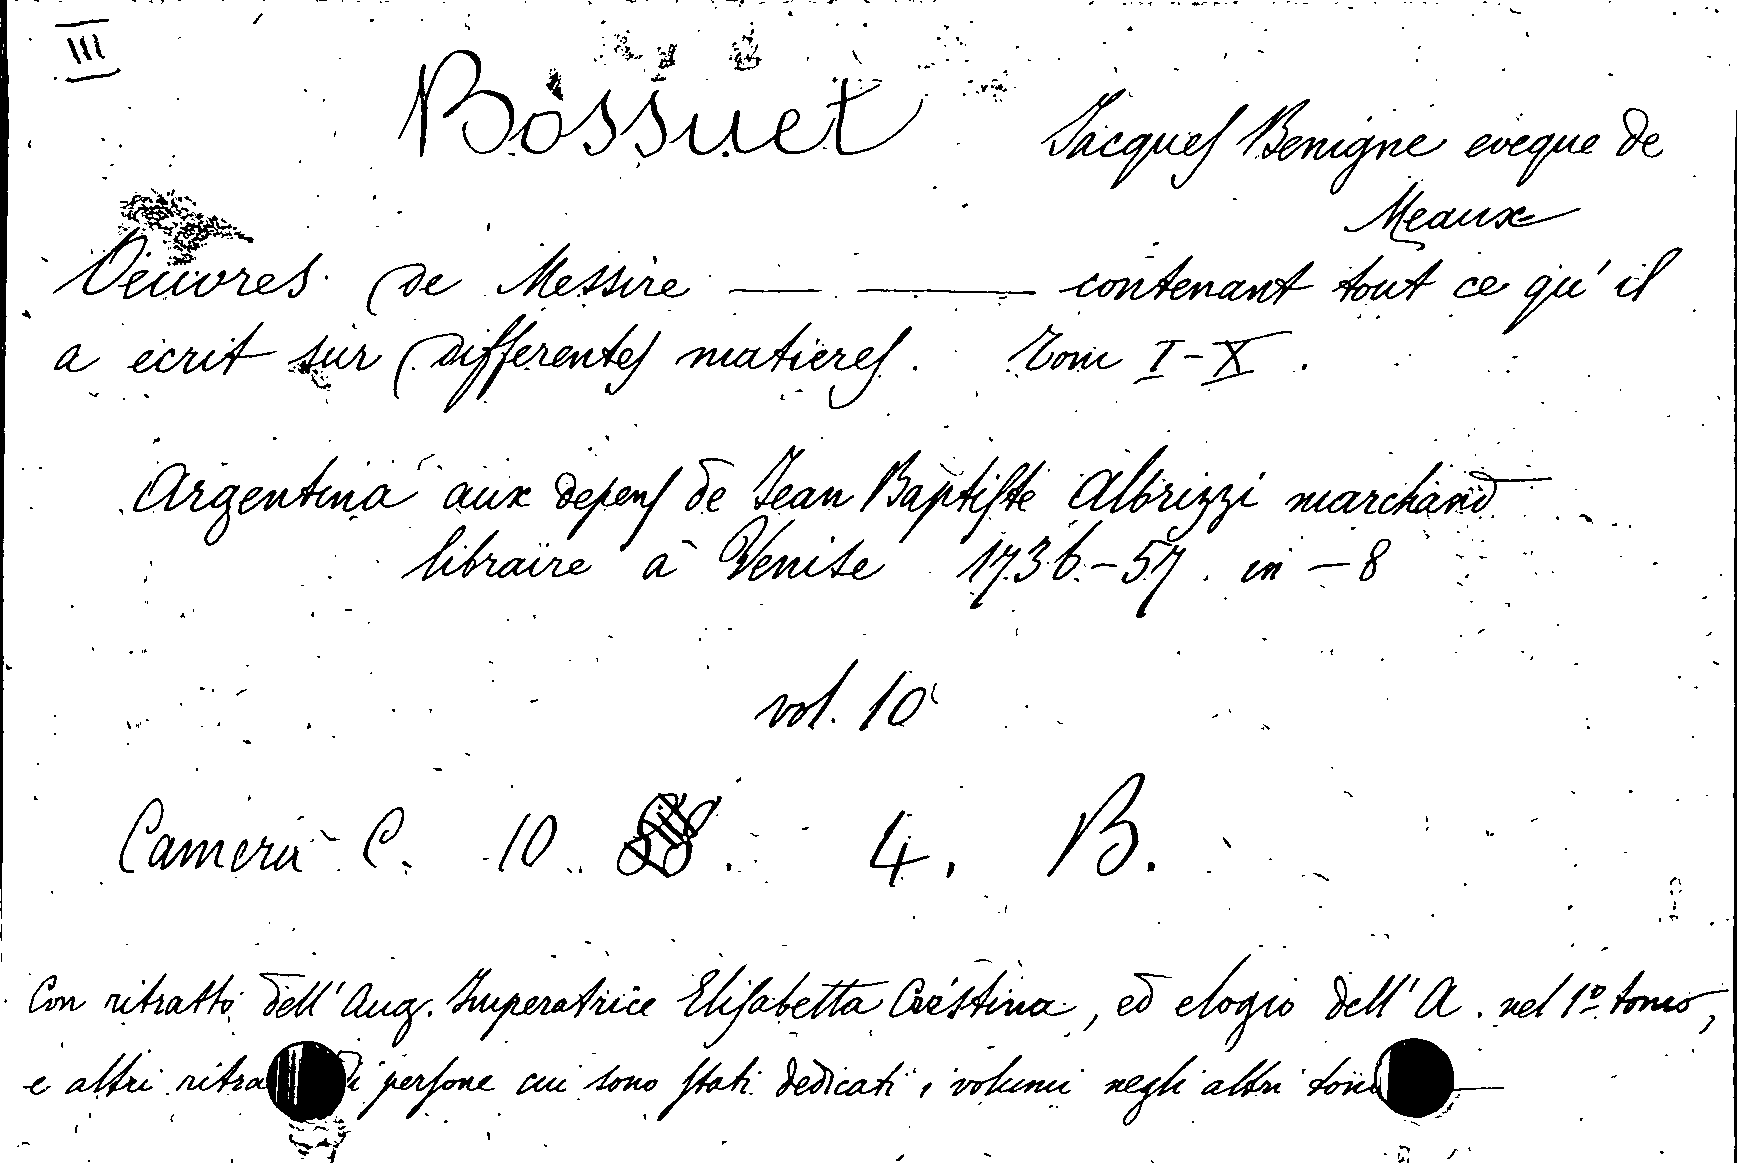 III
Bossuet Jacques Benigne eveque de
Meaux
Oeuvres de Messire — — contenant tout ce qu'il
a ecrit sur differentes matieres. Tom I-X.
Argentina aux depens de Jean Baptiste Albrizzi marchand
libraire à Venise 1736-57. in-8
vol. 10
Camera C. 10. 4. B.
Con ritratto dell'Aug. Imperatrice Elisabetta Cristina, ed elogio dell'A. nel 1º tomo,
e altri di persone cui sono stati dedicati i volumi negli altri tomi —